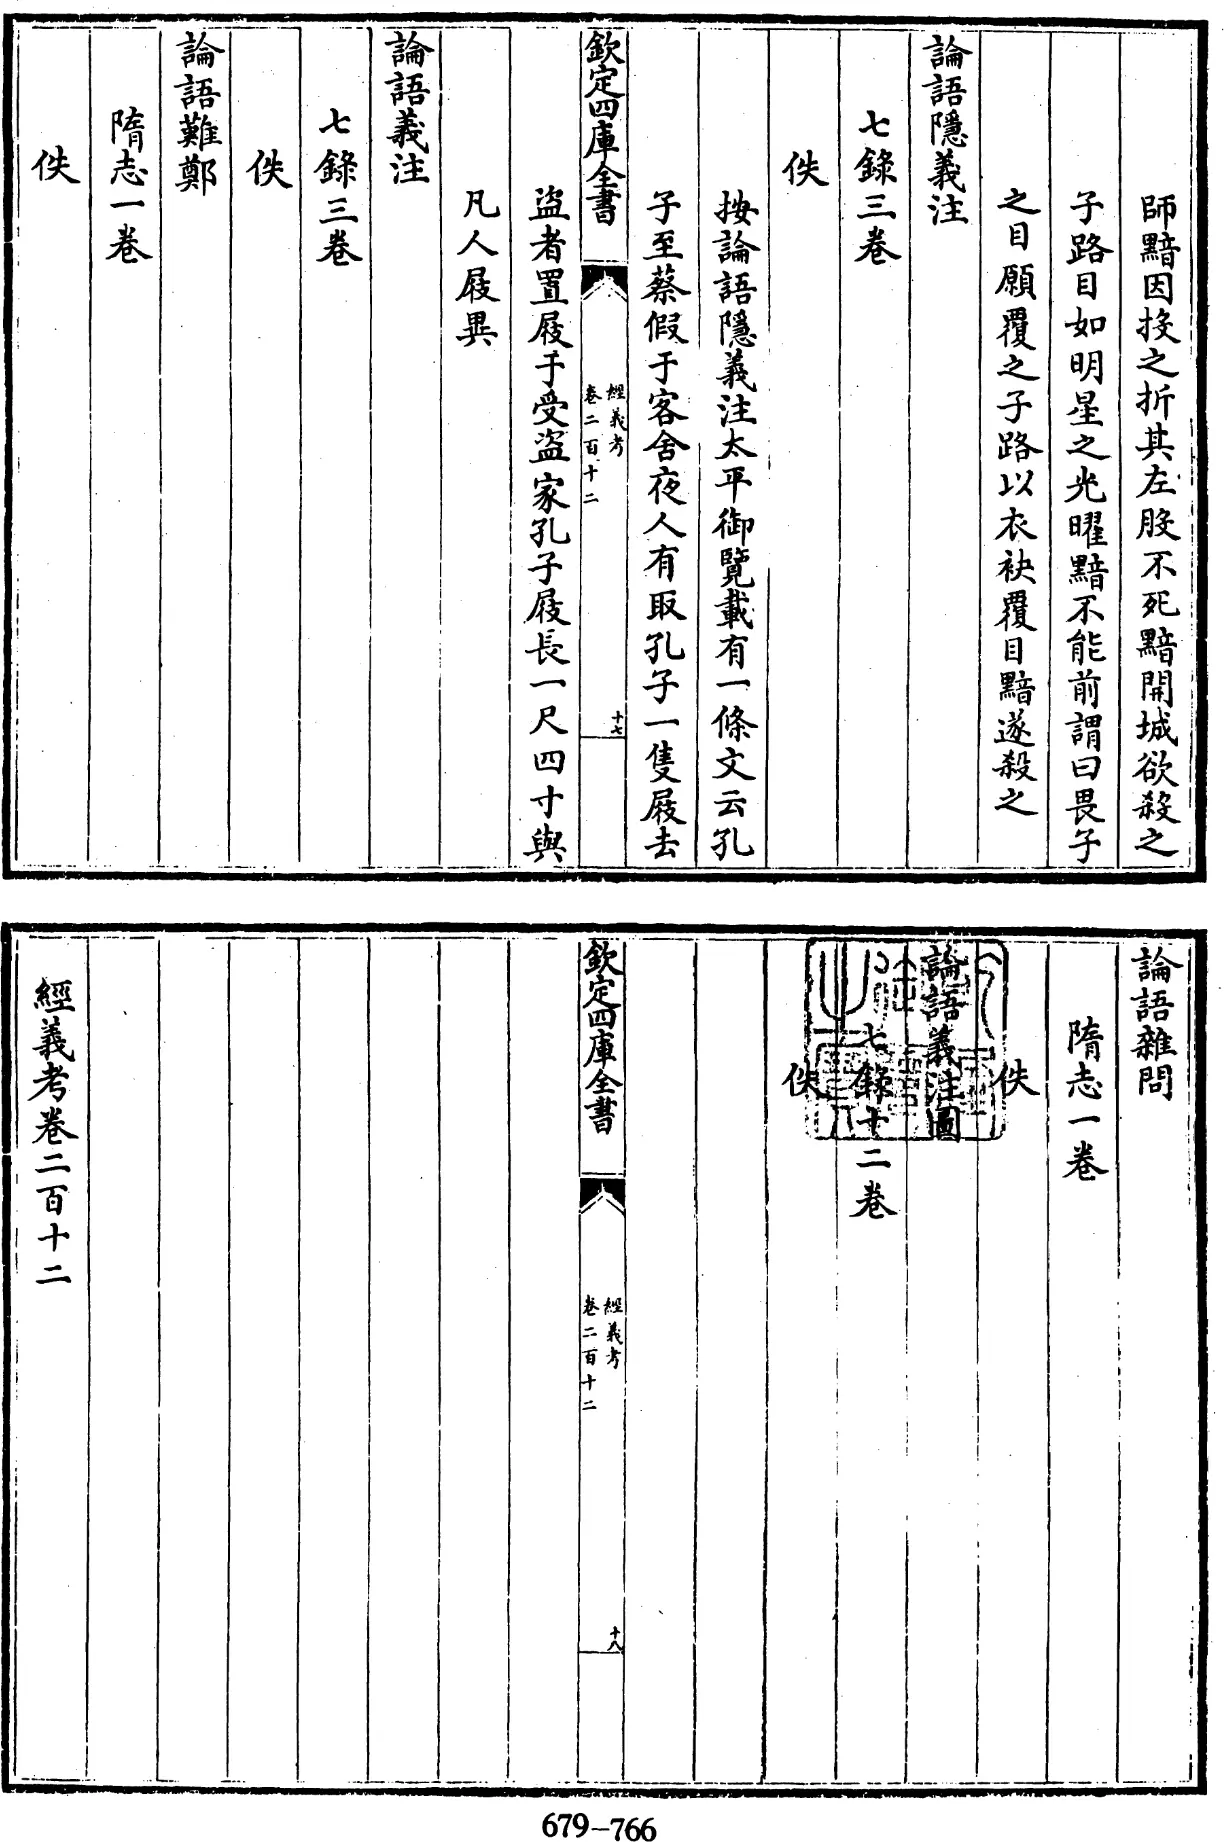 師黯因投之折其左股不死黯開城欲殺之
子路目如明星之光曜黯不能前謂曰畏子
之目願覆之子路以衣袂覆目黯遂殺之
論語隱義注
七錄三卷
佚
按論語隱義注太平御覽載有一條文云孔
子至蔡假于客舍夜人有取孔子一隻屐去
欽定四庫全書
經義考
卷二百十二
十七
盜者置屐于受盜家孔子屐長一尺四寸與
凡人屐異
論語義注
七錄三卷
佚
論語難鄭
隋志一卷
佚
論語雜問
隋志一卷
佚
論語義注圖
七錄十二卷
佚
欽定四庫全書
經義考
卷二百十二
十八
經義考卷二百十二
679-766